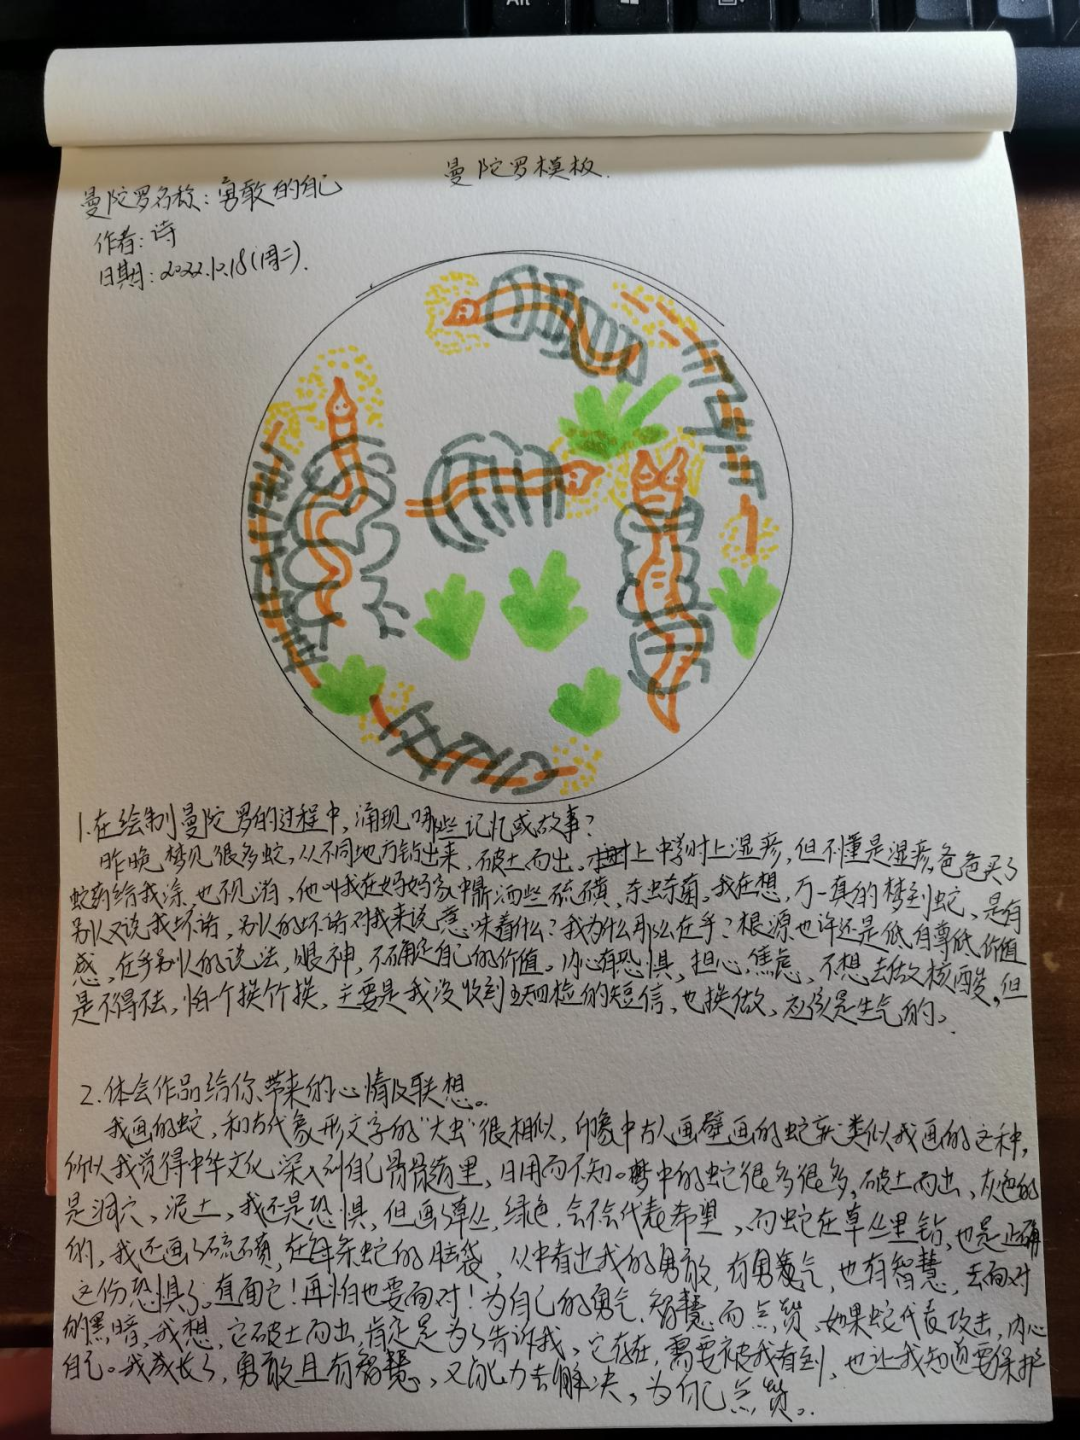 Alt
曼陀罗模板.
曼陀罗名称:勇敢的自己
作者:诗
日期:2022.10.18(周二).
1.在绘制曼陀罗的过程中,涌现哪些记忆或故事?
昨晚梦见很多蛇,从不同地方钻出来,破土而出。上中学时上湿疹,但不懂是湿疹,爸爸买了
蛇药给我涂,也没消,他叫我在妈妈家中洒些硫磺,杀虫杀菌。我在想,万一真的梦到蛇,是有
别人又说我坏话,别人的坏话对我来说意味着什么?我为什么那么在乎?根源也许还是低自尊低价值
感,在乎别人的说法,眼神,不确定自己的价值。内心有恐惧,担心,焦虑,不想去做核酸,但
是不得不去,怕个挨个挨,主要是我没收到五天四检的短信,也挨做,应该是生气的。
2.体会作品给你带来的心情及联想。
我画的蛇,和古代象形文字的"大虫"很相似,印象中古人画壁画的蛇亦类似我画的这种,
所以我觉得中华文化深入到自己骨骼髓里,日用而不知。梦中的蛇很多很多,破土而出,灰色的
是洞穴、泥土,我还是恐惧,但画了草丛,绿色,会不会代表希望,而蛇在草丛里钻,也是正确
的,我还画了硫磺,在每条蛇的脑袋,从中看出我的勇敢,有勇气,也有智慧,去面对
这份恐惧了。直面它!再怕也要面对!为自己的勇气、智慧而点赞。如果蛇代表攻击,内心
的黑暗,我想,它破土而出,肯定是为了告诉我,它存在,需要被我看到,也让我知道要保护
自己。我成长了,勇敢且有智慧,又能力去解决,为自己点赞。